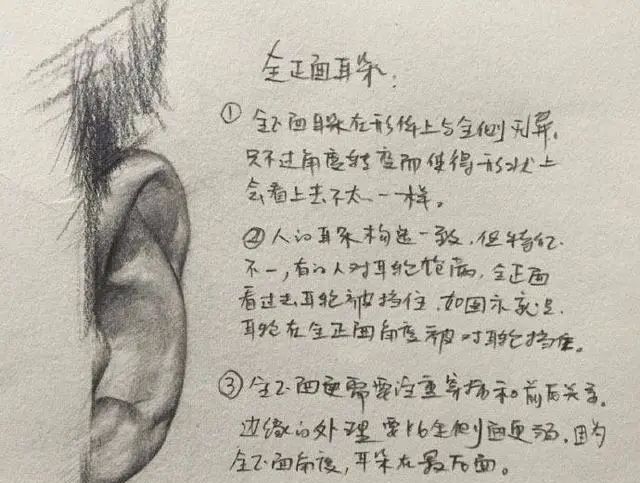 全正面耳朵:
① 全正面耳朵在形体上与全侧无异,
只不过角度转变而使得形状上
会看上去不太一样。
② 人的耳朵构造一致,但特征
不一,有的人对耳轮饱满,全正面
看过去耳轮被挡住,如图示就是
耳轮在全正面角度被对耳轮挡住。
③ 全正面更需要注重穿插和前后关系,
边缘的处理要比全侧面更弱,因为
全正面角度,耳朵在最后面。